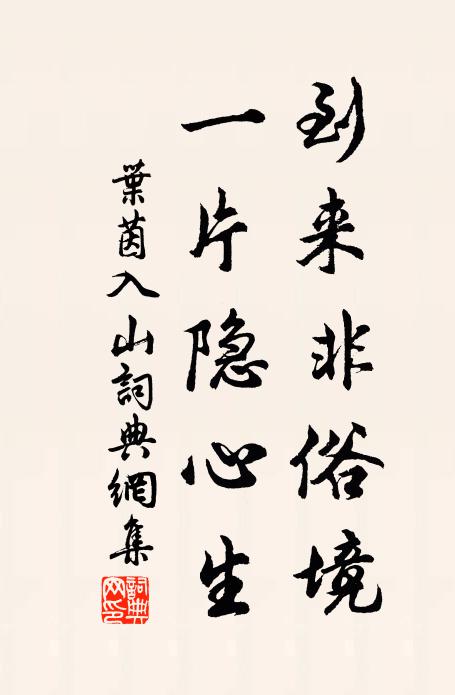 到来非俗境
一片隐心生
葉茵入山詞典網集
詞典网印